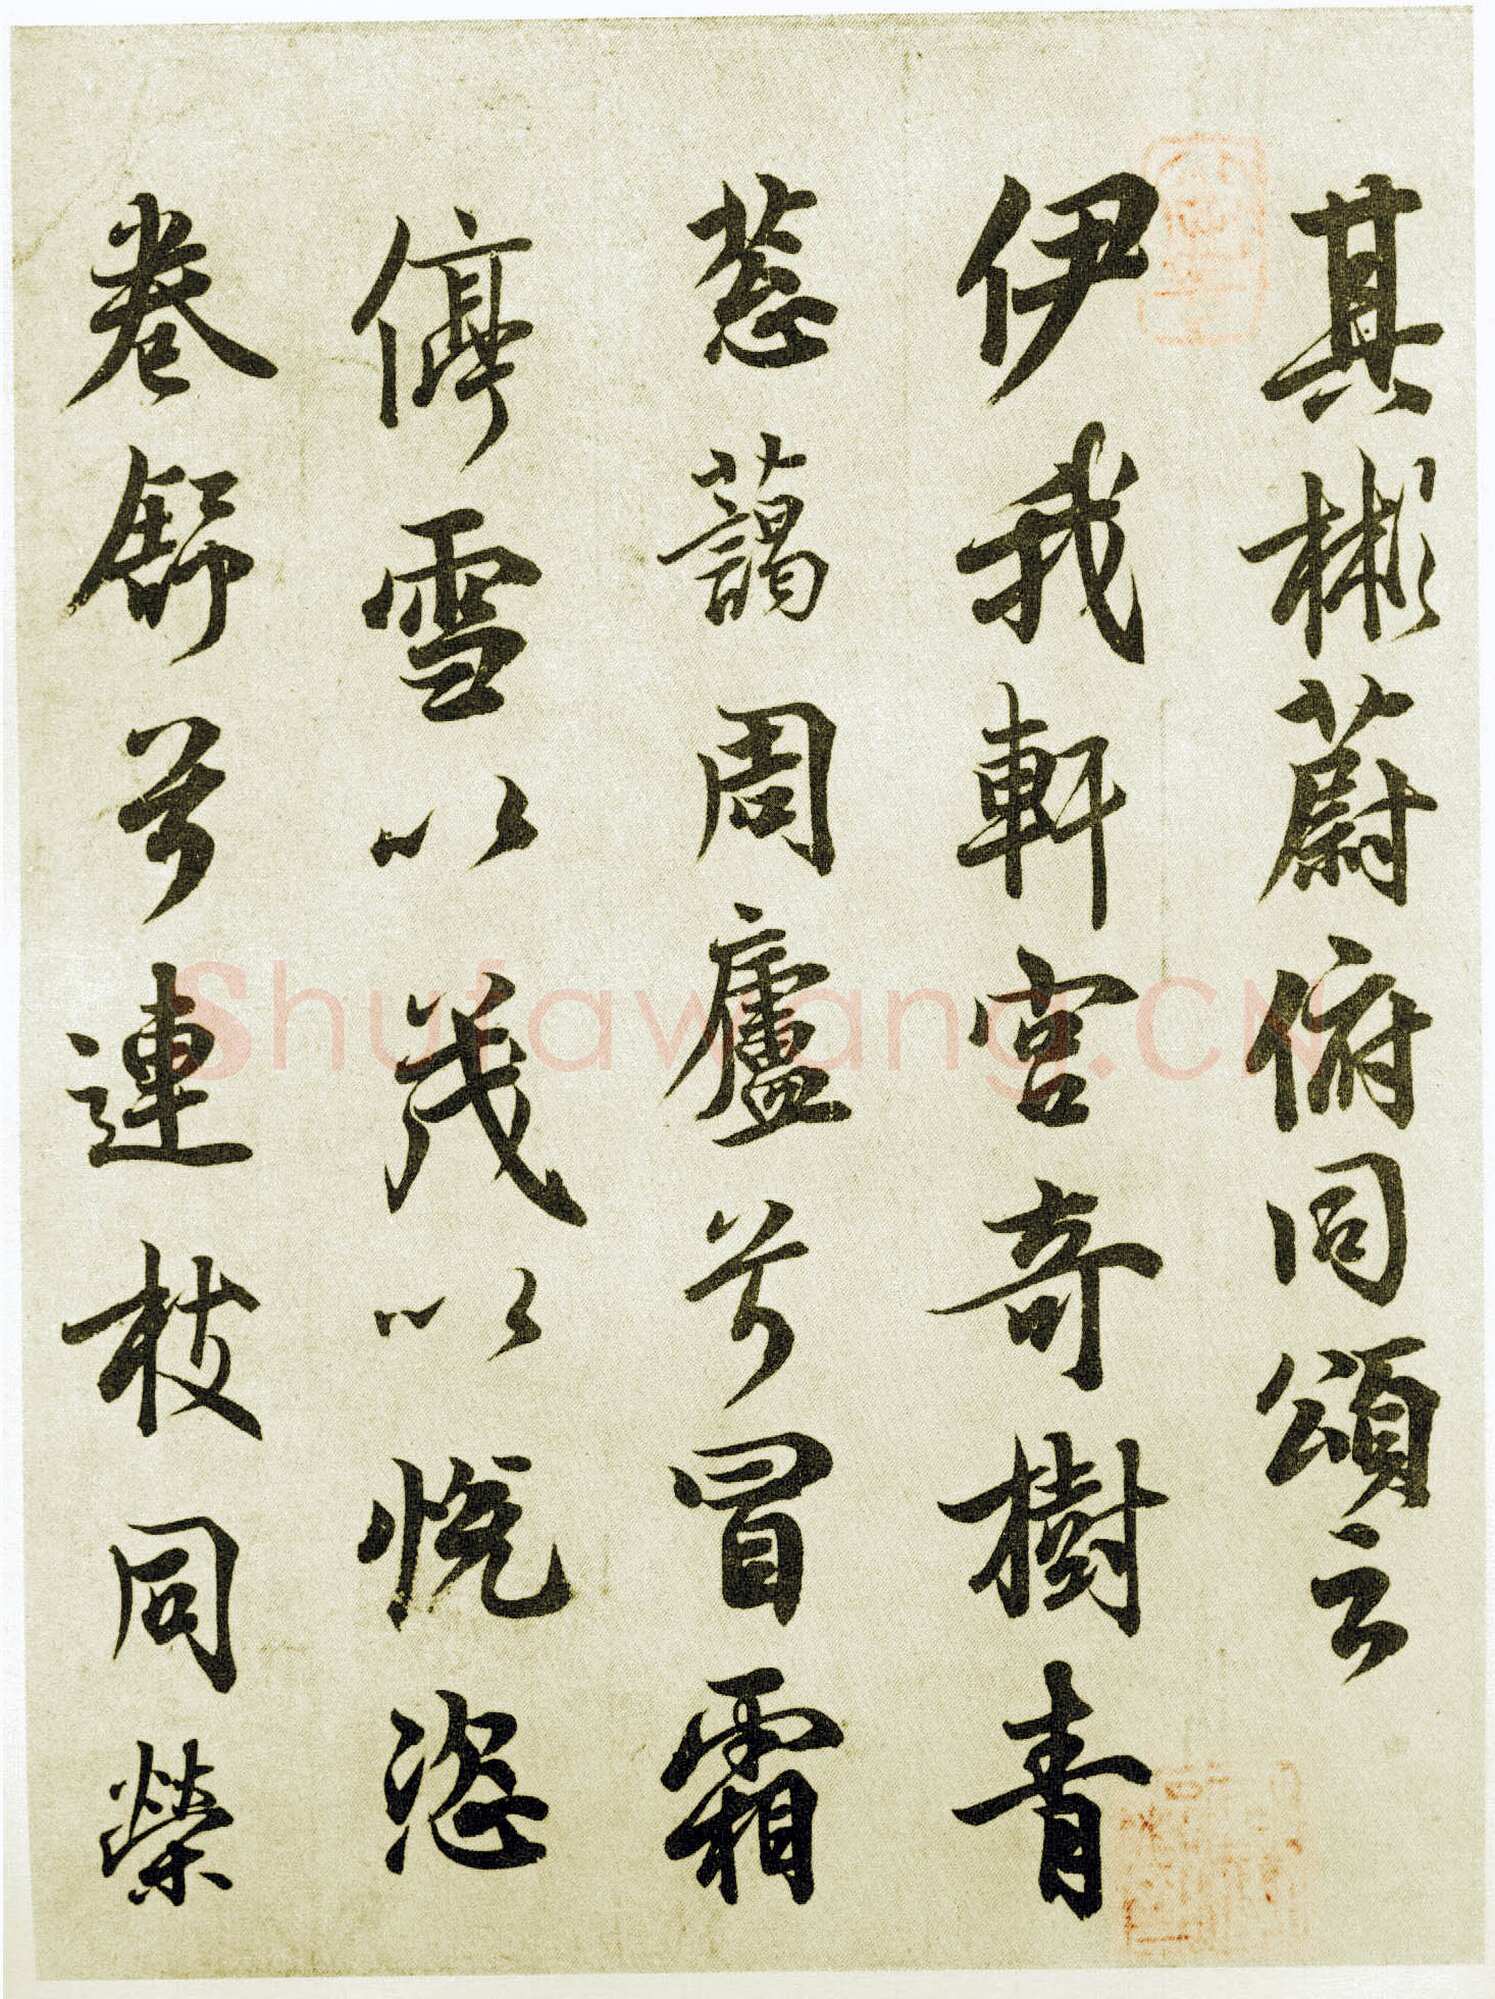 其彬蔚俯同頌云
伊我軒宮奇樹青
蔥藹周廬兮冒霜
停雪以茂以悅恣
卷舒兮連枝同榮
Shufawang.CN